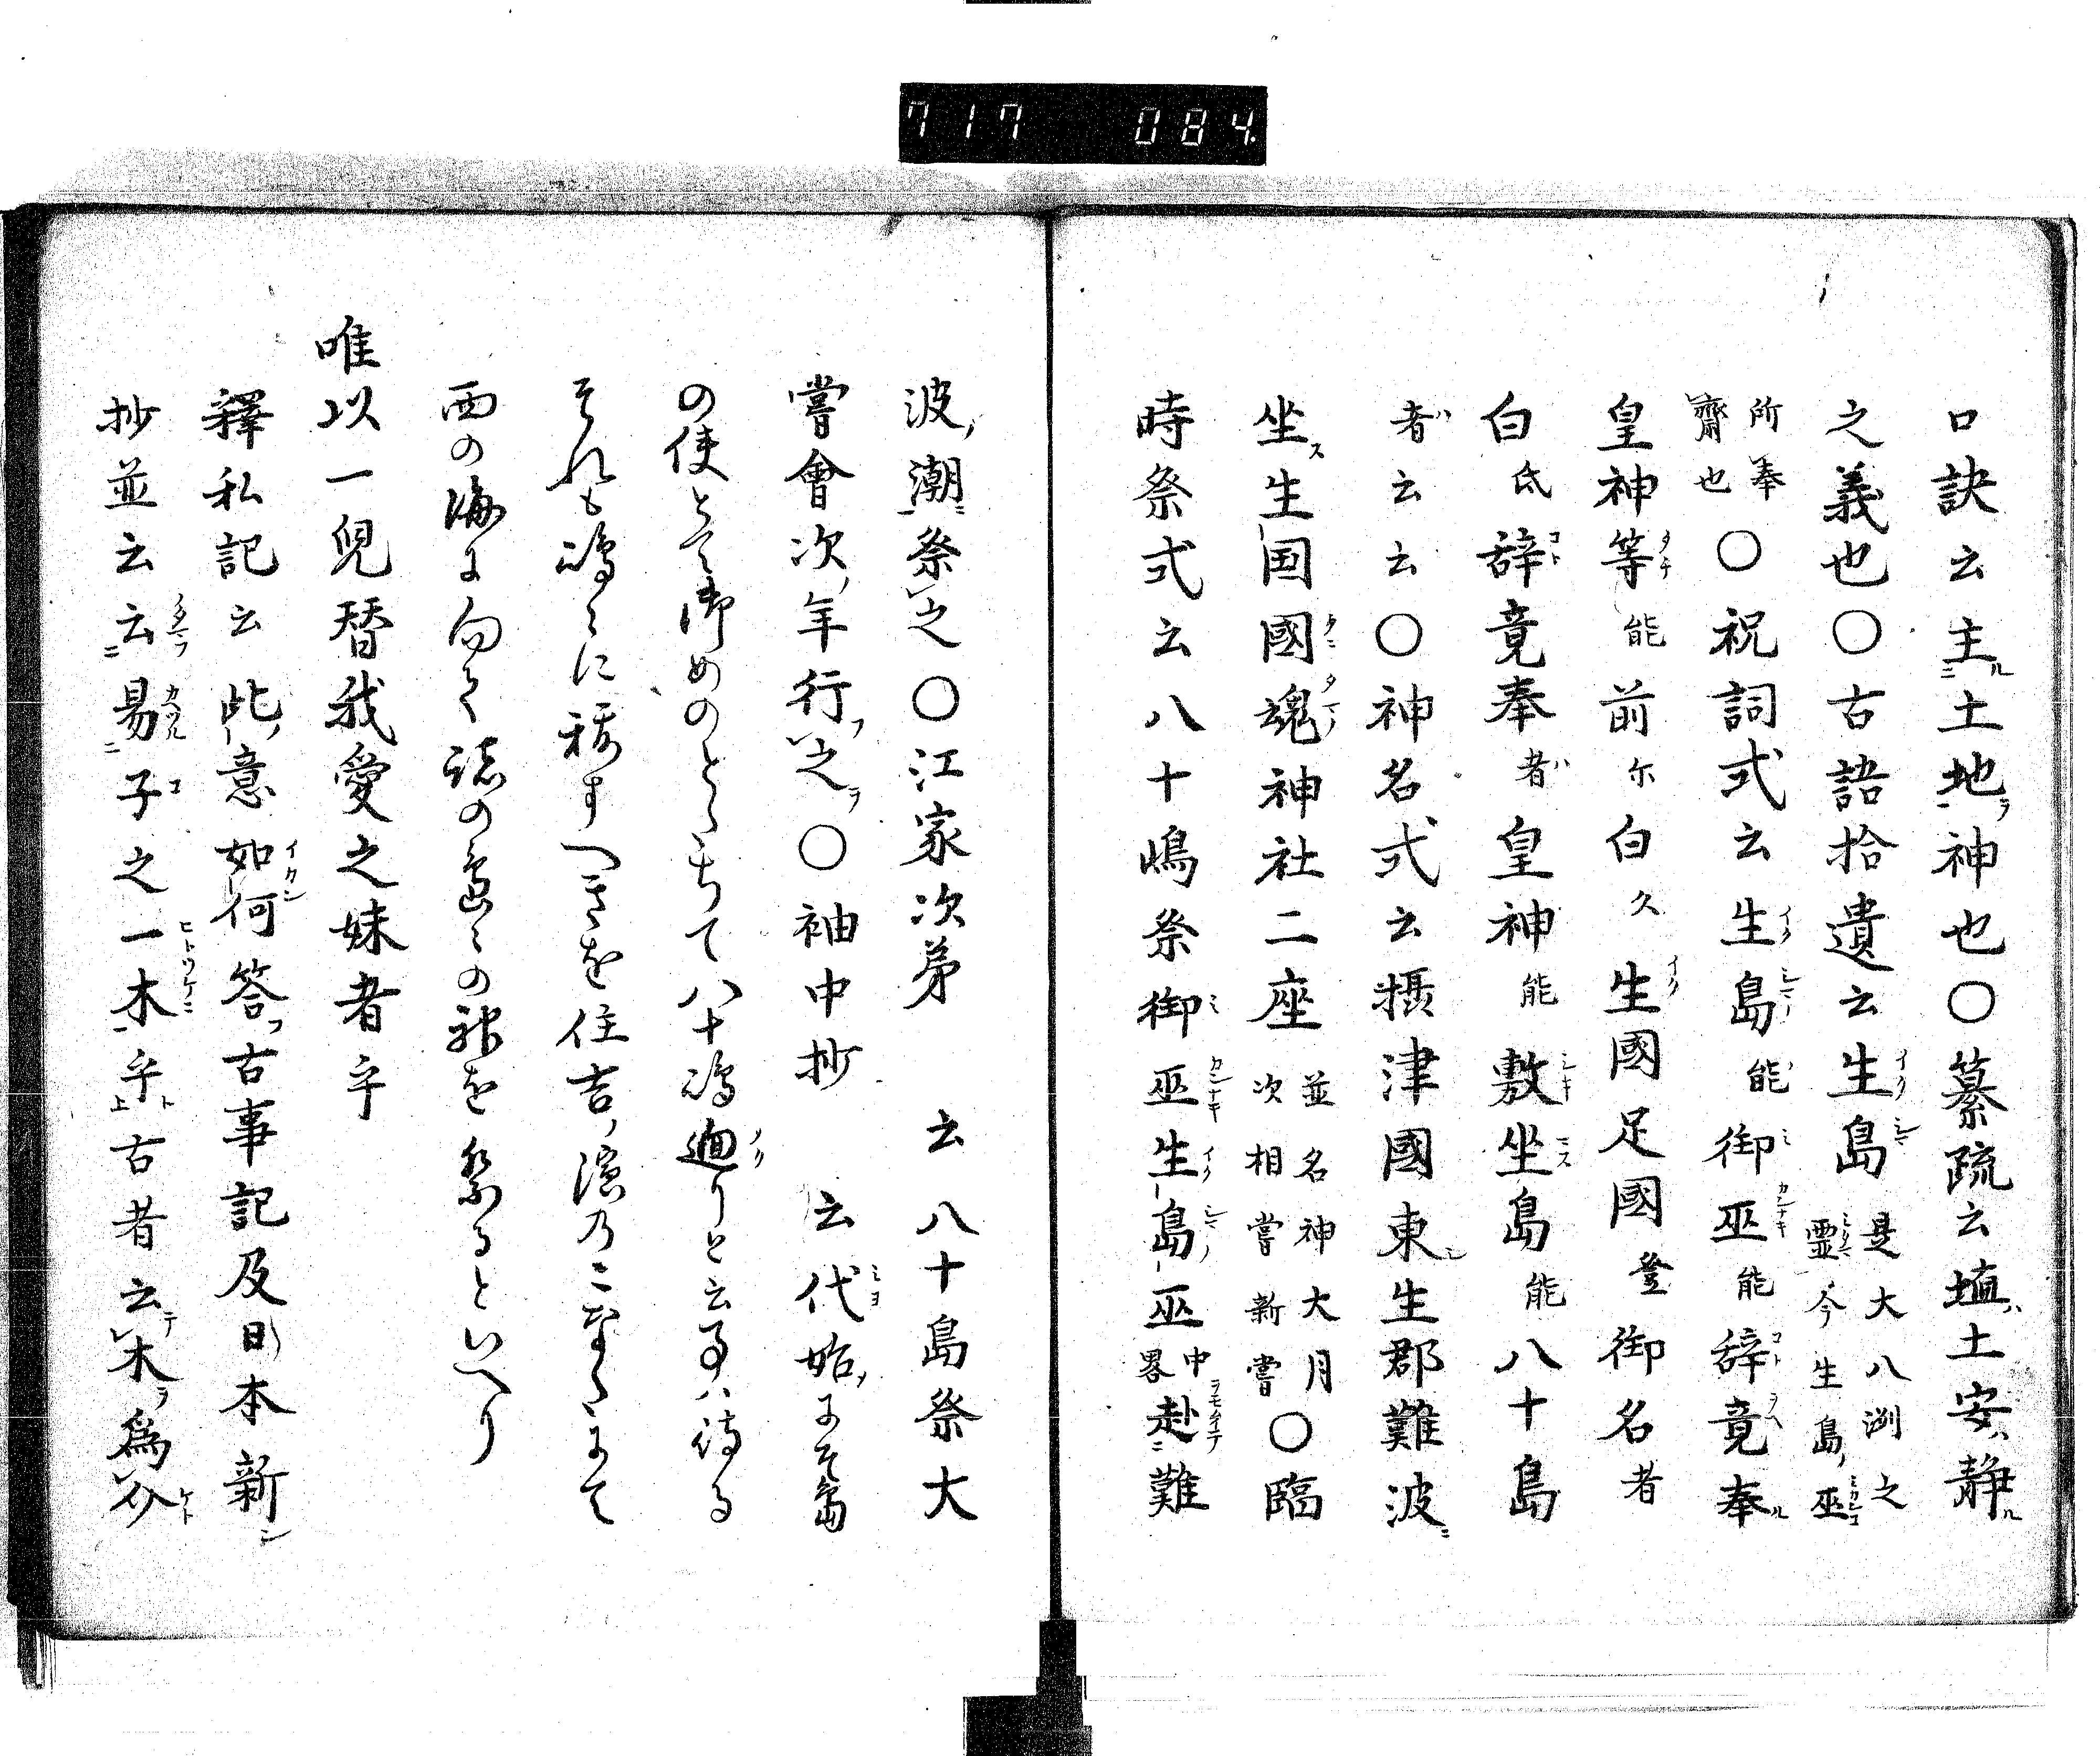 717 084
口訣云主土地神也〇纂疏云埴土安静
之義也〇古語拾遺云生島 是大八洲之霊今生島巫
所奉齋也〇祝詞式云生島能御巫能辞竟奉
皇神等能前尓白久生國足國登御名者
白氐辞竟奉者皇神能敷坐島能八十島
者云云〇神名式云摂津國東生郡難波
坐生国國魂神社二座 並名神大月次相嘗新嘗〇臨
時祭式云八十嶋祭御巫生島巫 中畧 赴難
波潮祭之〇江家次第 云八十島祭大
嘗會次年行之〇袖中抄 云代始
の使とて御めのとたちて八十嶋廻りと云事ハ侍る
それも嶋々に祓すへきを住吉濱の
西の海に向て諸の島々の神を祭るといへり
唯以一兒替我愛之妹者乎
釋私記云此意如何答古事記及日本新
抄並云云易子之一木乎古者云木爲介